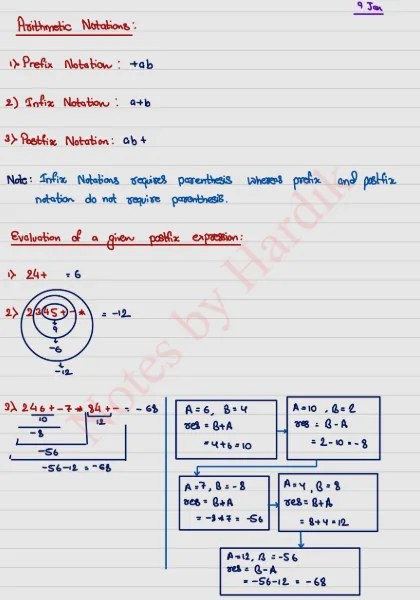 9 Jan
Arithmetic Notations:
1) Prefix Notation : +ab
2) Infix Notation : a+b
3) Postfix Notation : ab+
Note: Infix Notations requires parenthesis whereas prefix and postfix
notation do not require parenthesis.
Evaluation of a given postfix expression:
1) 24+ = 6
2) 2345+-* = -12
9
-6
-12
3) 246+-7*84+- = -68
10
12
-8
-56
-56-12 = -68
A=6, B=4
res = B+A
=4+6=10
A=10, B=2
res = B-A
= 2-10=-8
A=7, B=-8
res = B*A
= -8*7 = -56
A=4, B=8
res= B+A
= 8+4=12
A=12, B=-56
res = B-A
= -56-12 = -68
Notes by Hardik